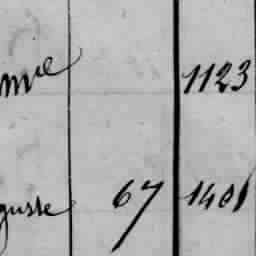 mie 1123
gusse 67 1401